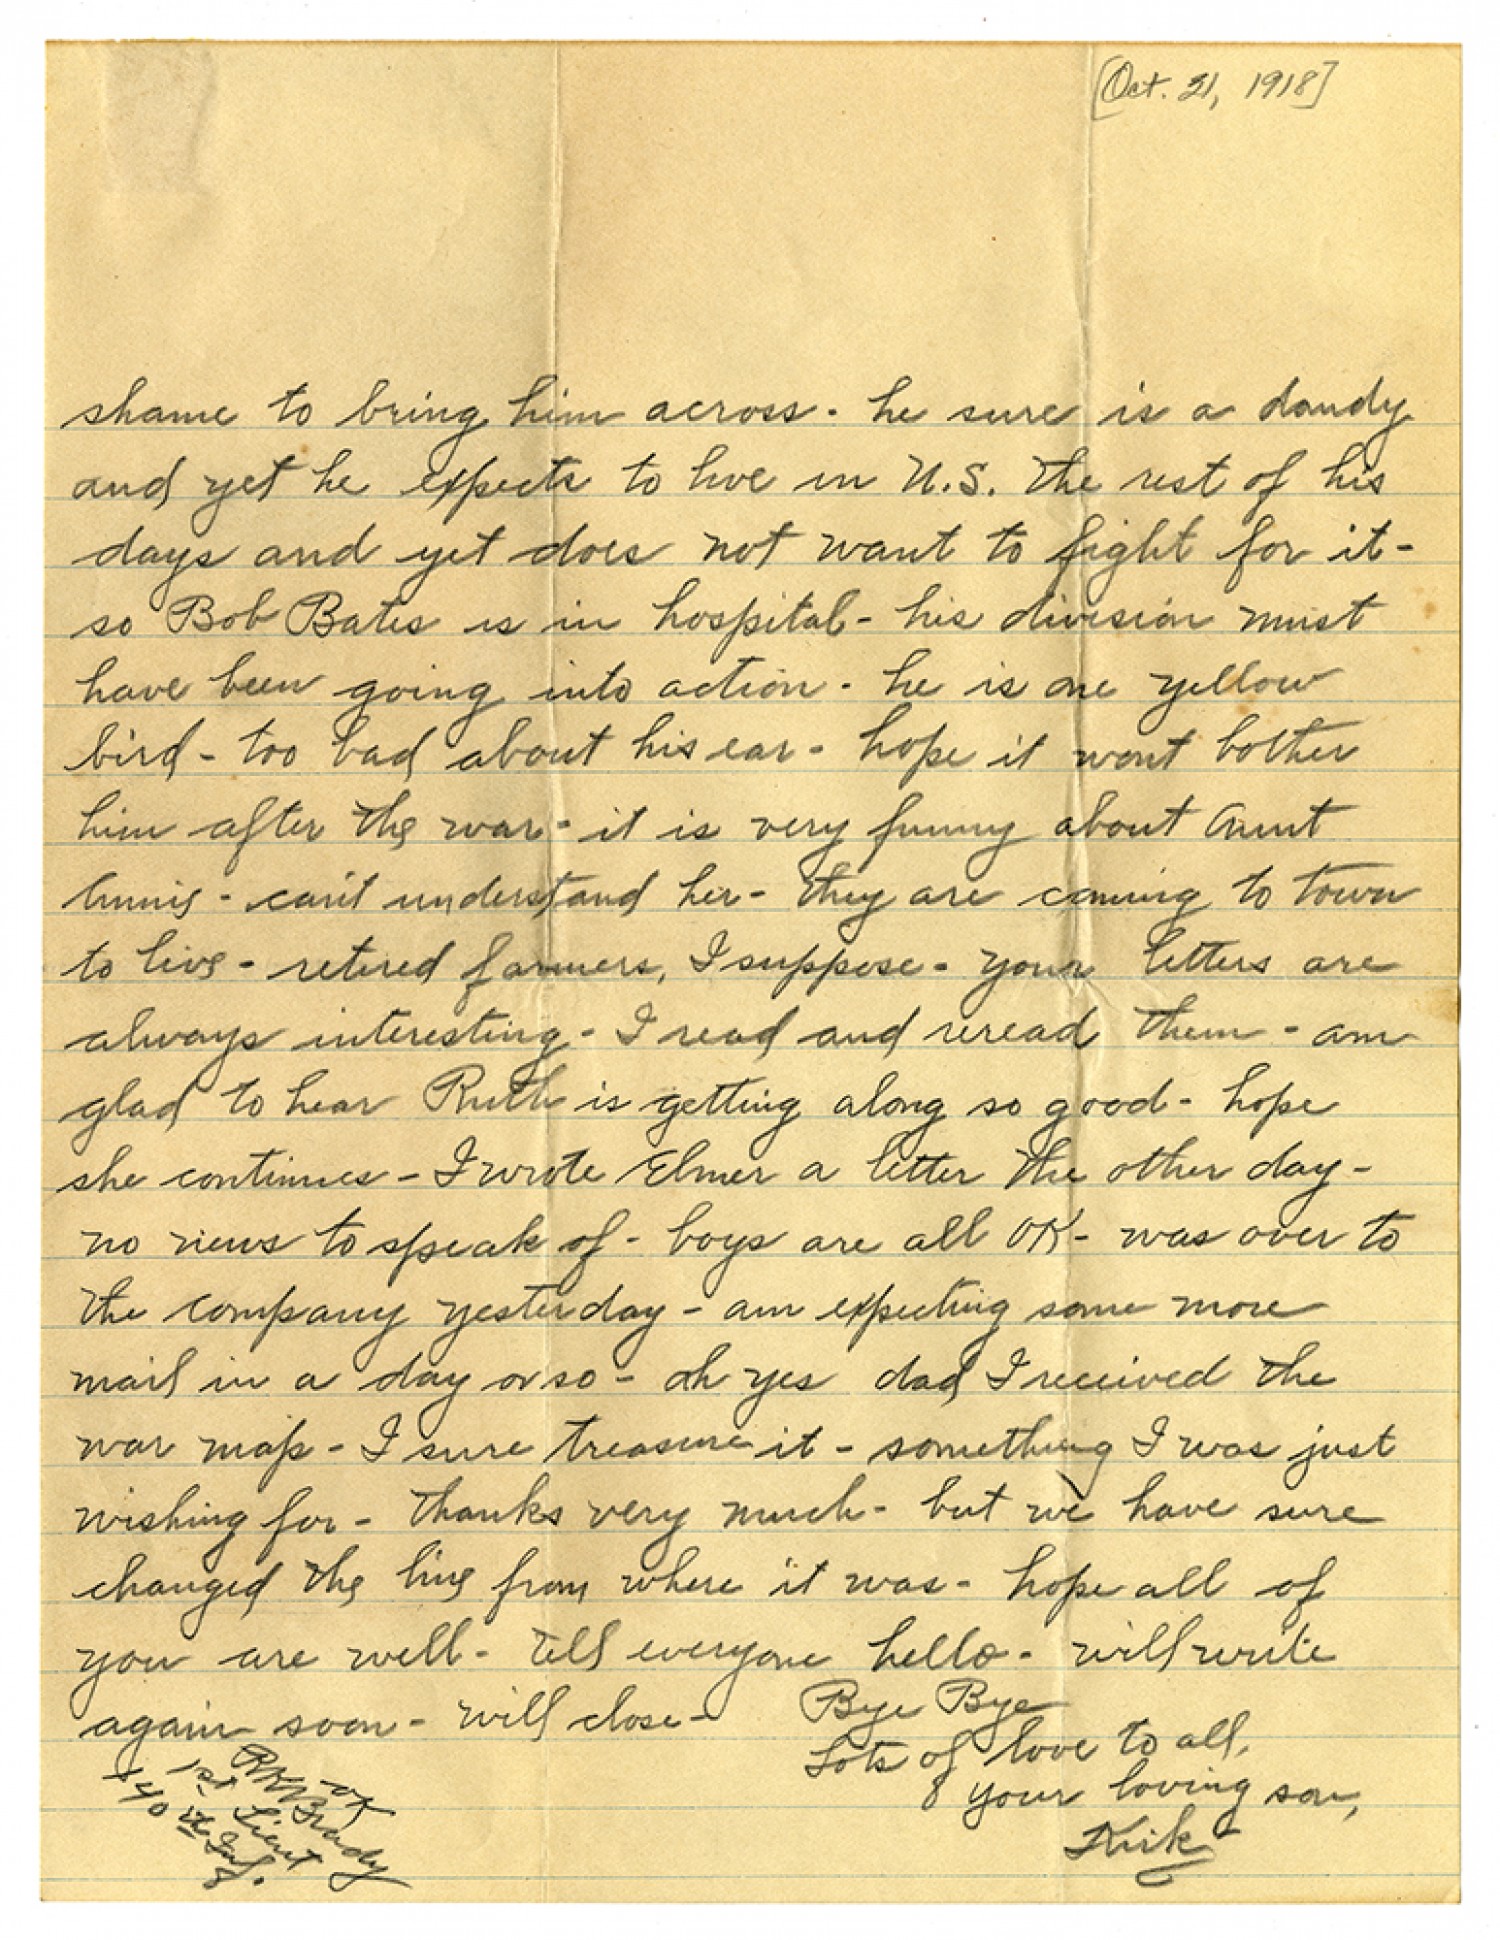 [Oct. 21, 1918]
shame to bring him across - he sure is a dandy
and yet he expects to live in U.S. the rest of his
days and yet does not want to fight for it -
so Bob Bates is in hospital - his division must
have been going into action - he is one yellow
bird - too bad about his ear - hope it wont bother
him after the war - it is very funny about Aunt
Annis - can't understand her - they are coming to town
to live - retired farmers, I suppose - your letters are
always interesting - I read and reread them - am
glad to hear Ruth is getting along so good - hope
she continues - I wrote Elmer a letter the other day -
no news to speak of - boys are all OK - was over to
the company yesterday - am expecting some more
mail in a day or so - oh yes dad I received the
war map - I sure treasure it - something I was just
wishing for - thanks very much - but we have sure
changed the line from where it was - hope all of
you are well - tell everyone hello - will write
again soon - will close -
Bye Bye
Lots of love to all,
Your loving son,
Kirk
OK
RKBrady
1st Lieut
140th Inf.